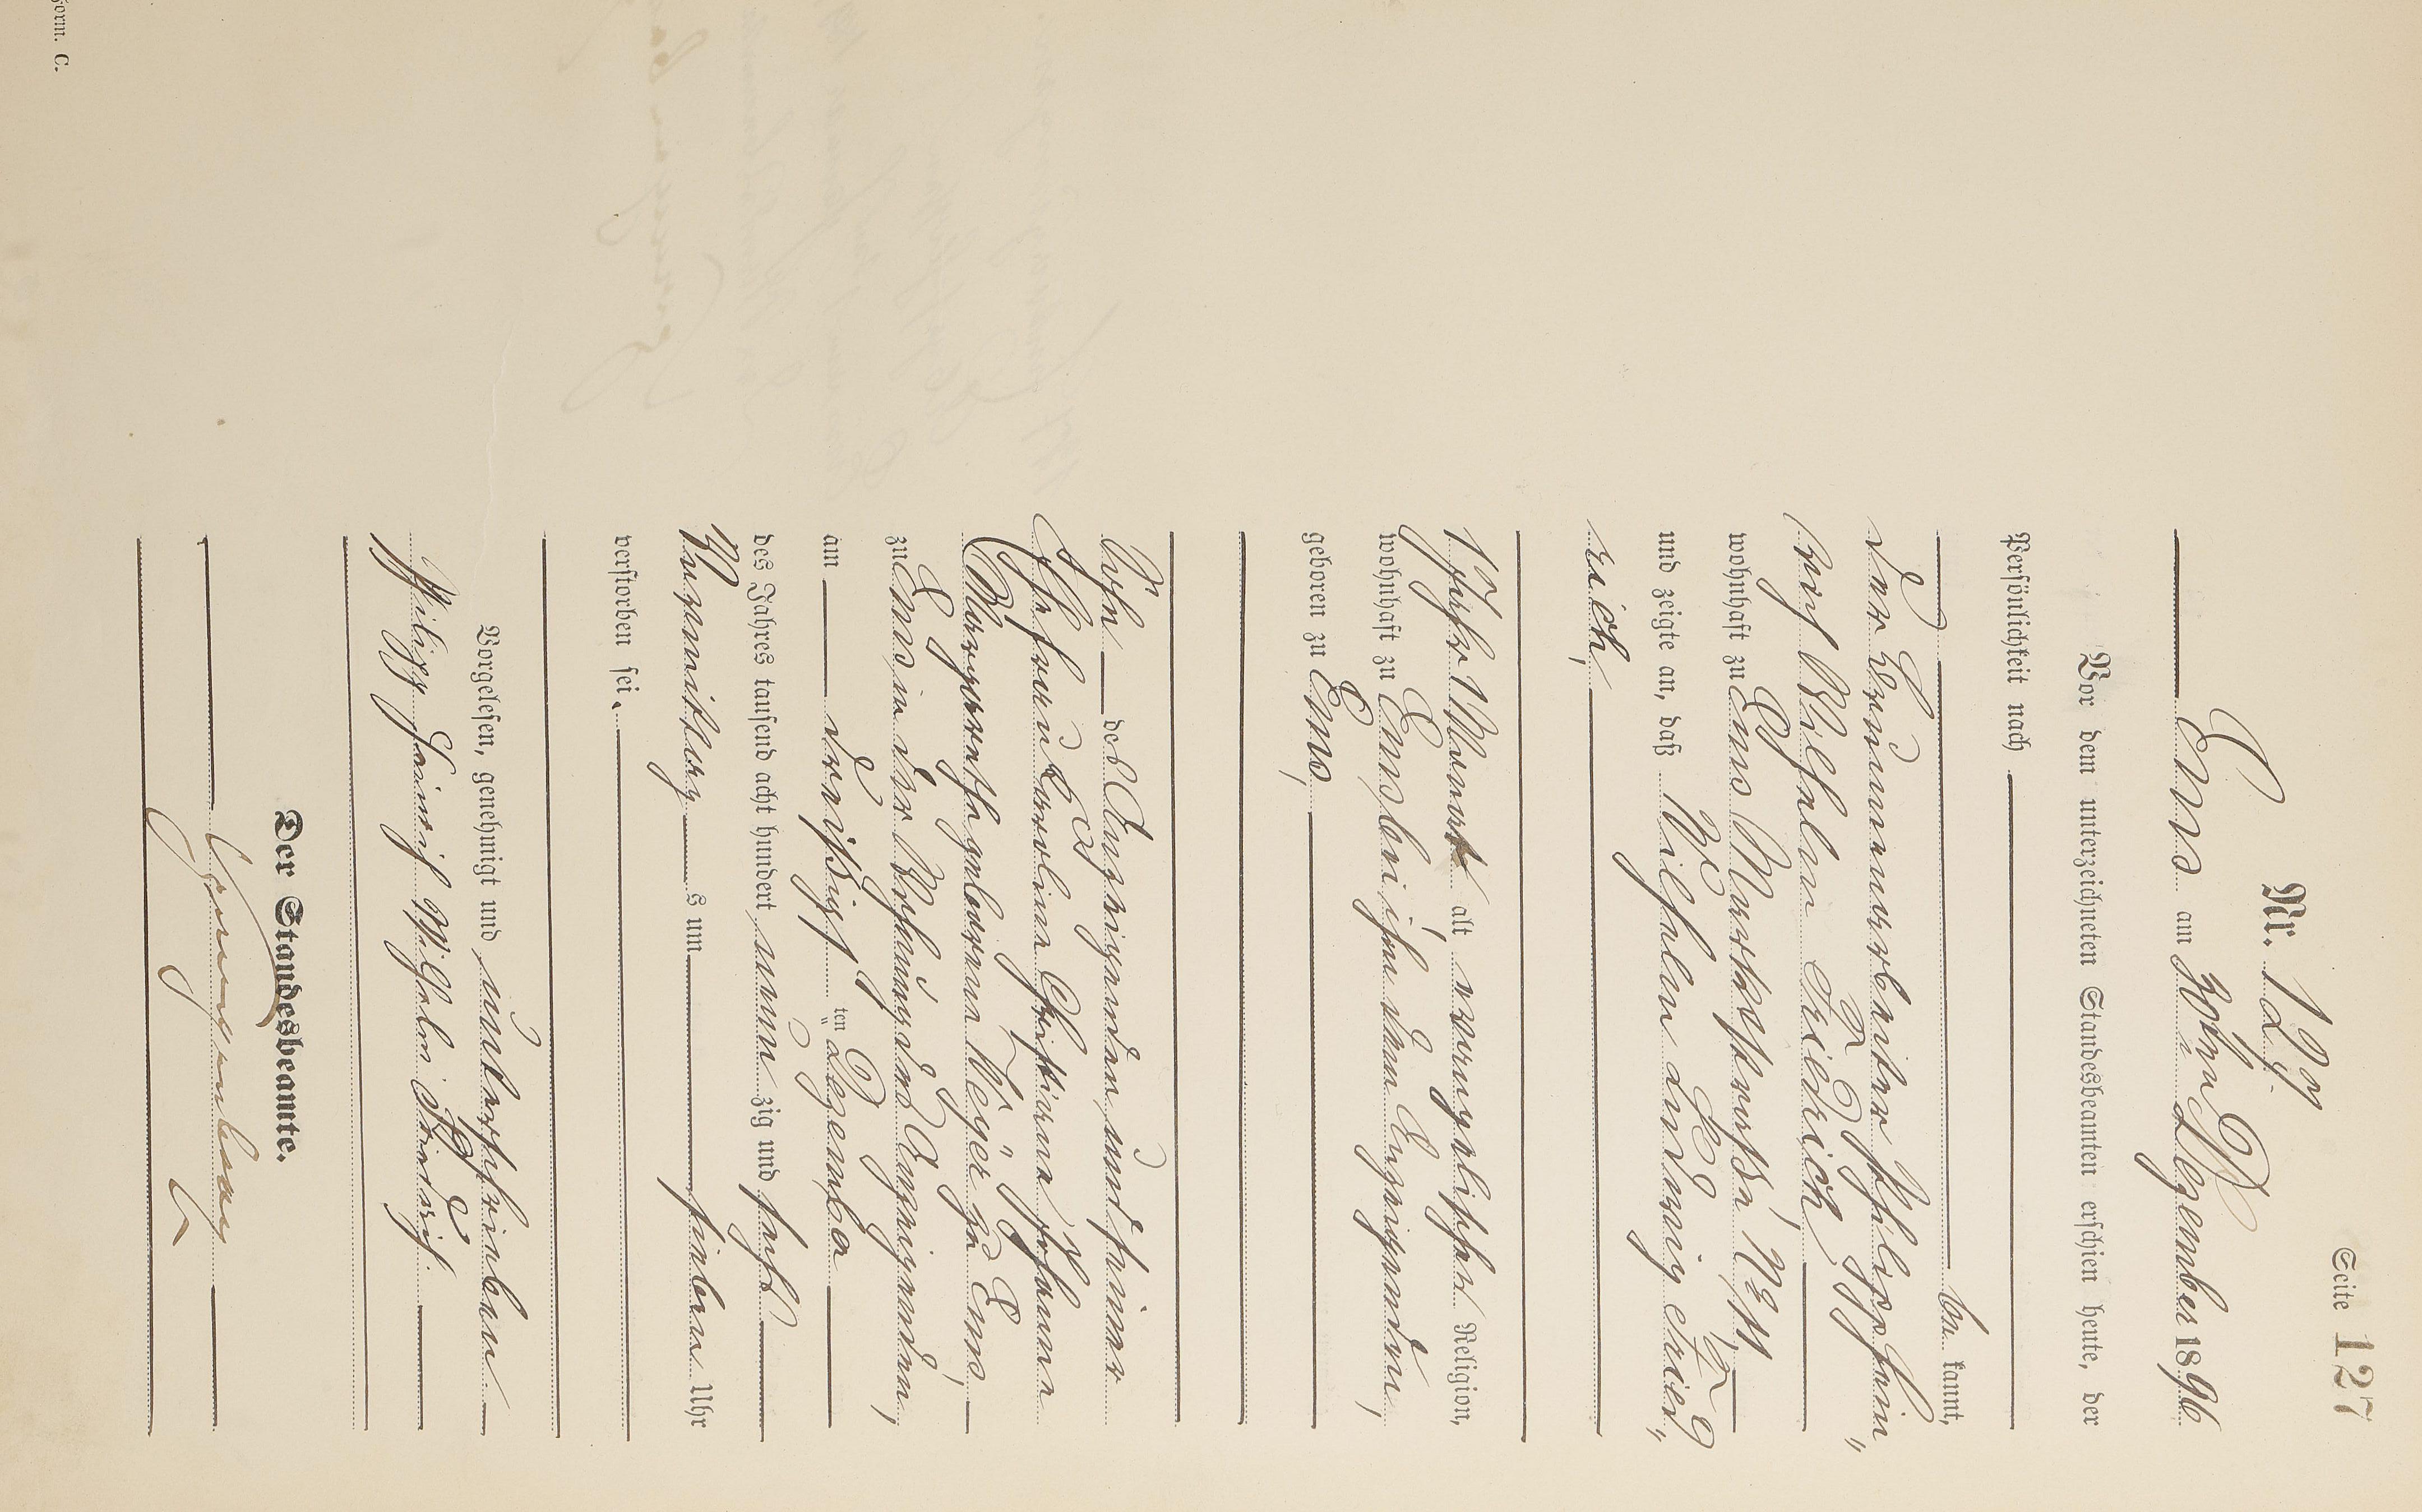 Seite 127
Nr. 129.
Ems am 30ten Dezember 1896
Vor dem unterzeichneten Standesbeamten erschien heute, der
Persönlichkeit nach
be kannt,
der Brunnenarbeiter Philipp Hein„
rich Wilhelm Friedrich,
wohnhaft zu Ems Marktstraße, No 11,
und zeigte an, daß Wilhelm Ludwig Fried„
rich,
1 Jahr 1 Monat alt evangelischer Religion,
wohnhaft zu Ems, bei ihm dem Anzeigenden,
geboren zu Ems,
Sohn des Anzeigenden, und seiner
Ehefrau Caroline Christiane Johanna
Margarethe geborene zu Ems,
zu Ems in der Wohnung des Anzeigenden,
am dreißigs ten Dezember
des Jahres tausend acht hundert neun zig und sechs
Vormittags um sieben Uhr
verstorben sei.
Vorgelesen, genehmigt und unterschrieben
Philipp Heinrich Wilhelm Friedrich.
Der Standesbeamte.
Form. C.